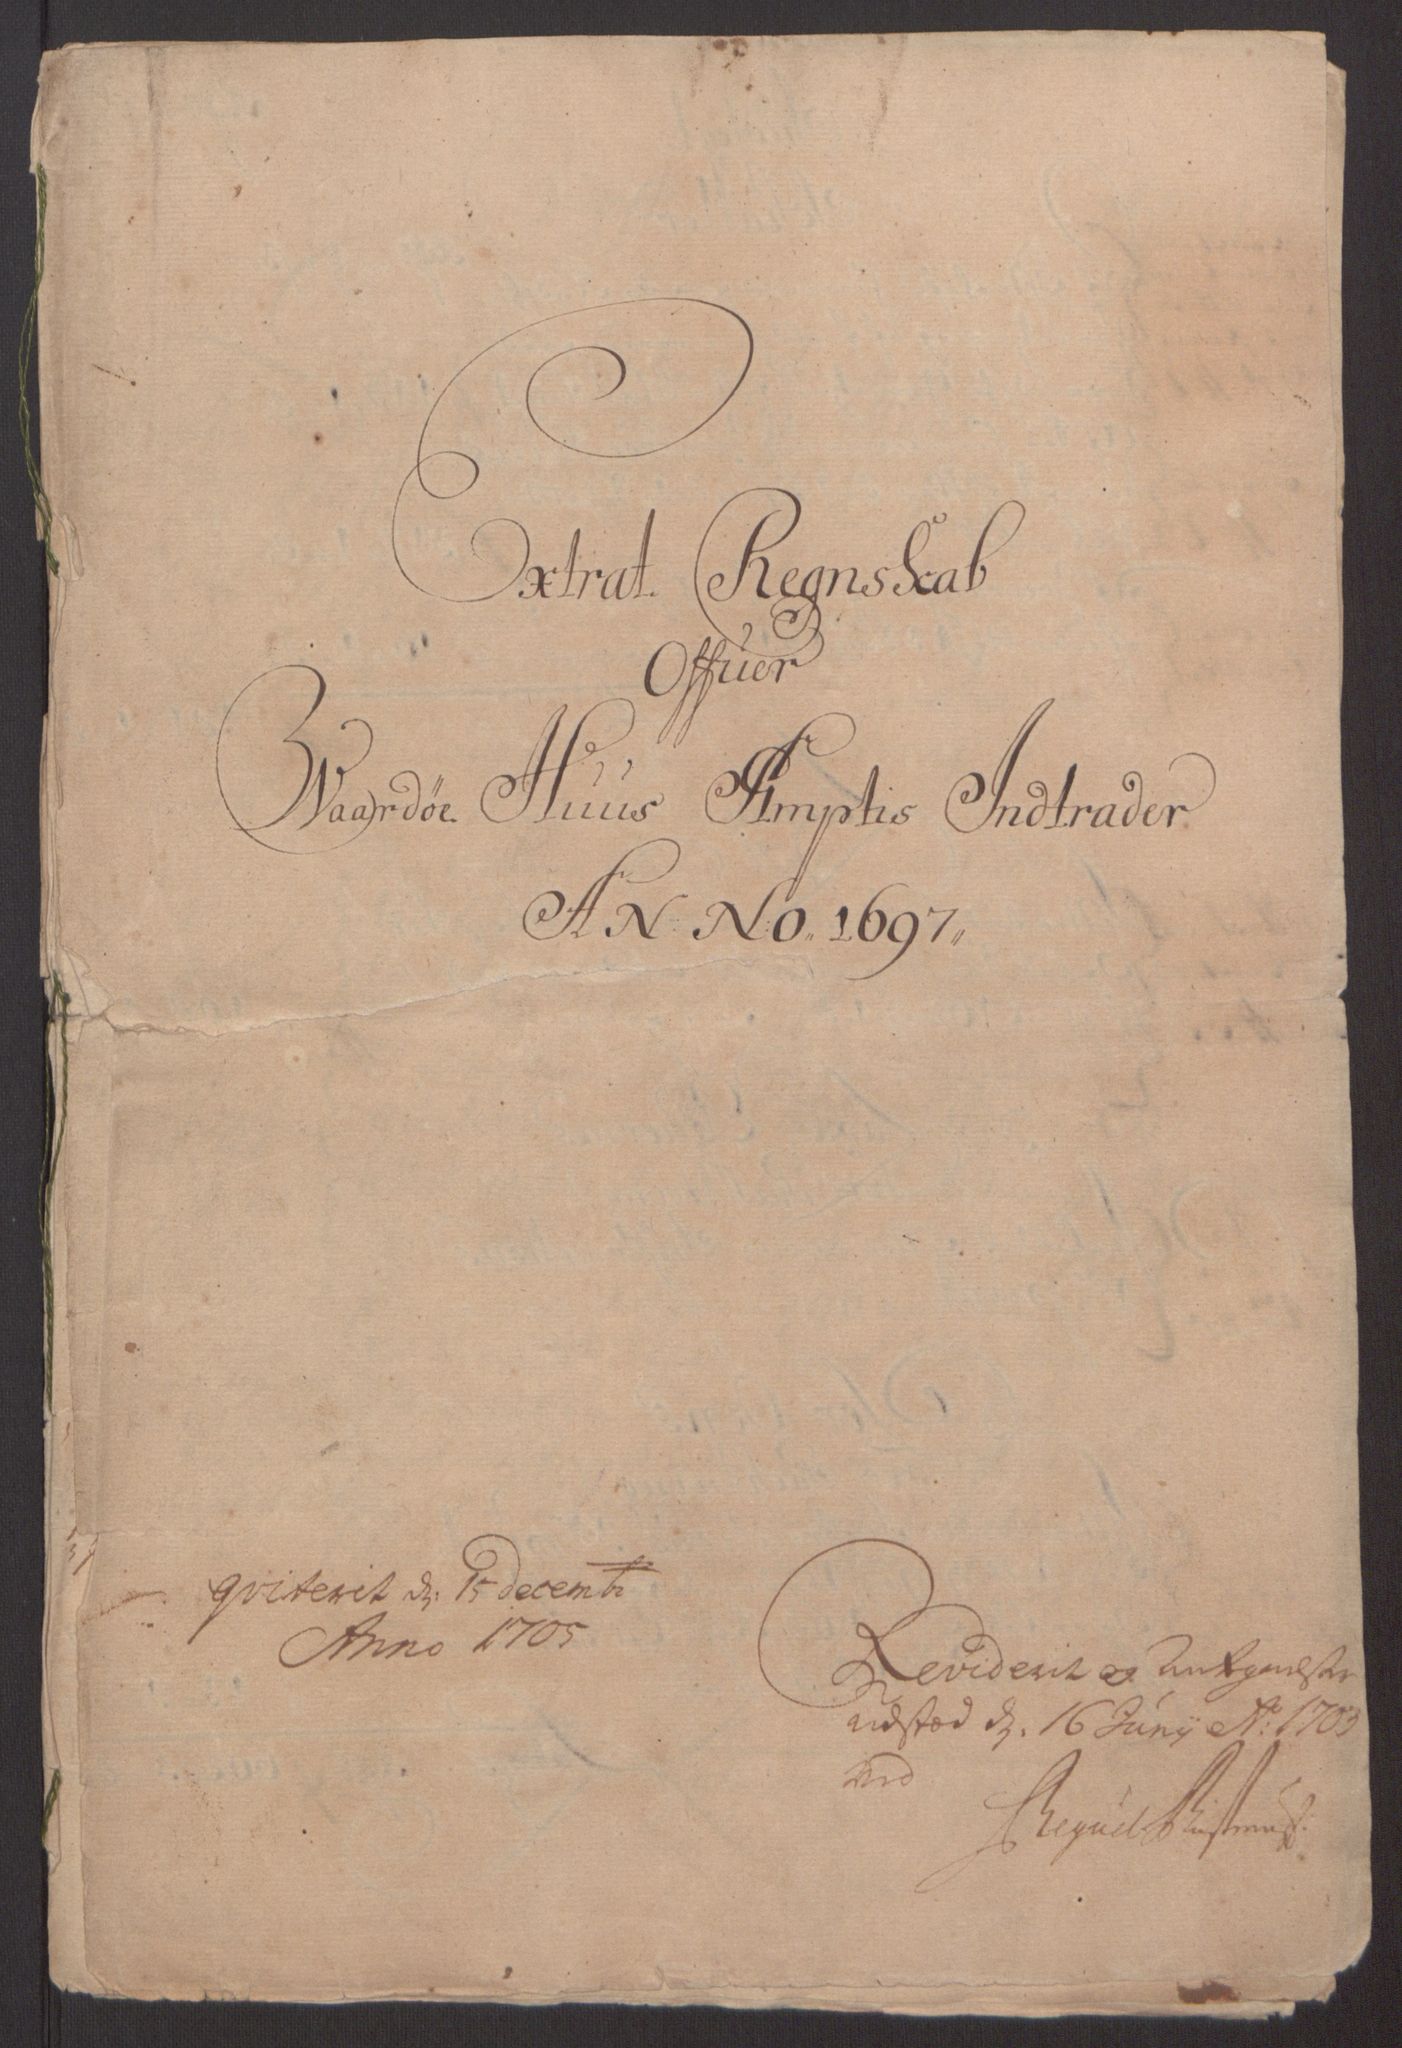 Extrat. Regnskab
Offuer
Waardøe Huus Amptis Indtrader
ANNO. 1697
qviterit d: 15 decembr
Anno 1705
Reviderit og
udstæd d. 16 Junij Ao: 1703
ved